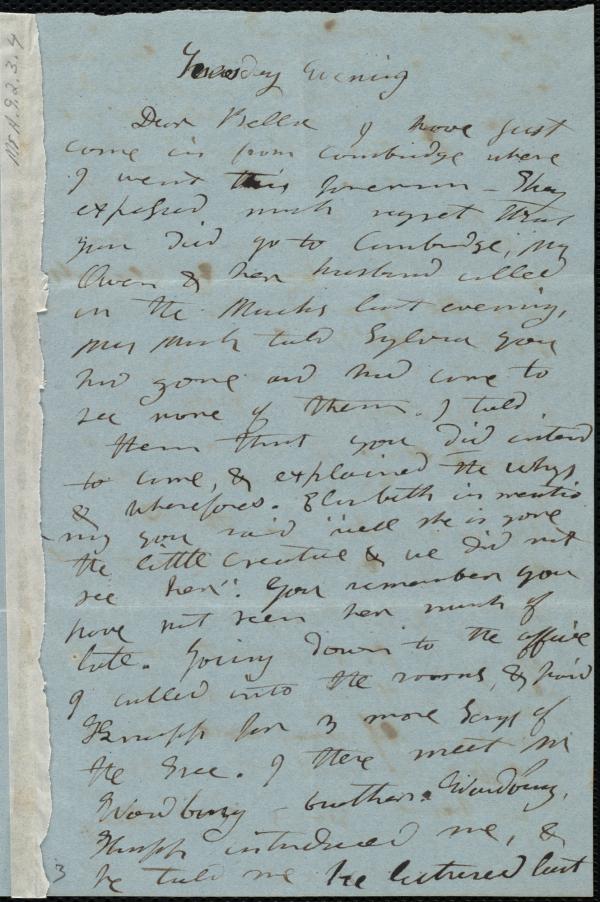 Ms.A.9.2.3.4
Tuesday Evening
Dear Bella I have just
come in from Cambridge where
I went this forenoon - They
expressed much regret that
you did go to Cambridge, My
Owen & her husband called
in the Mucks last evening,
Mrs Muck told Sylvia you
had gone and had come to
see none of them. I told
them that you did intend
to come, & explained the whys
& wherefores. Elizbeth in mentio
ny you said "well she is gone
the little creature & we did not
see her". You remember you
have not seen her much of
late. Going down to the office
I called into the rooms, & paid
Knapp for 3 more Copys of
the tree. I there meet Mr
Woodbury - brother Woodbury,
Knapp introduced me, &
he told me he lectured last
3